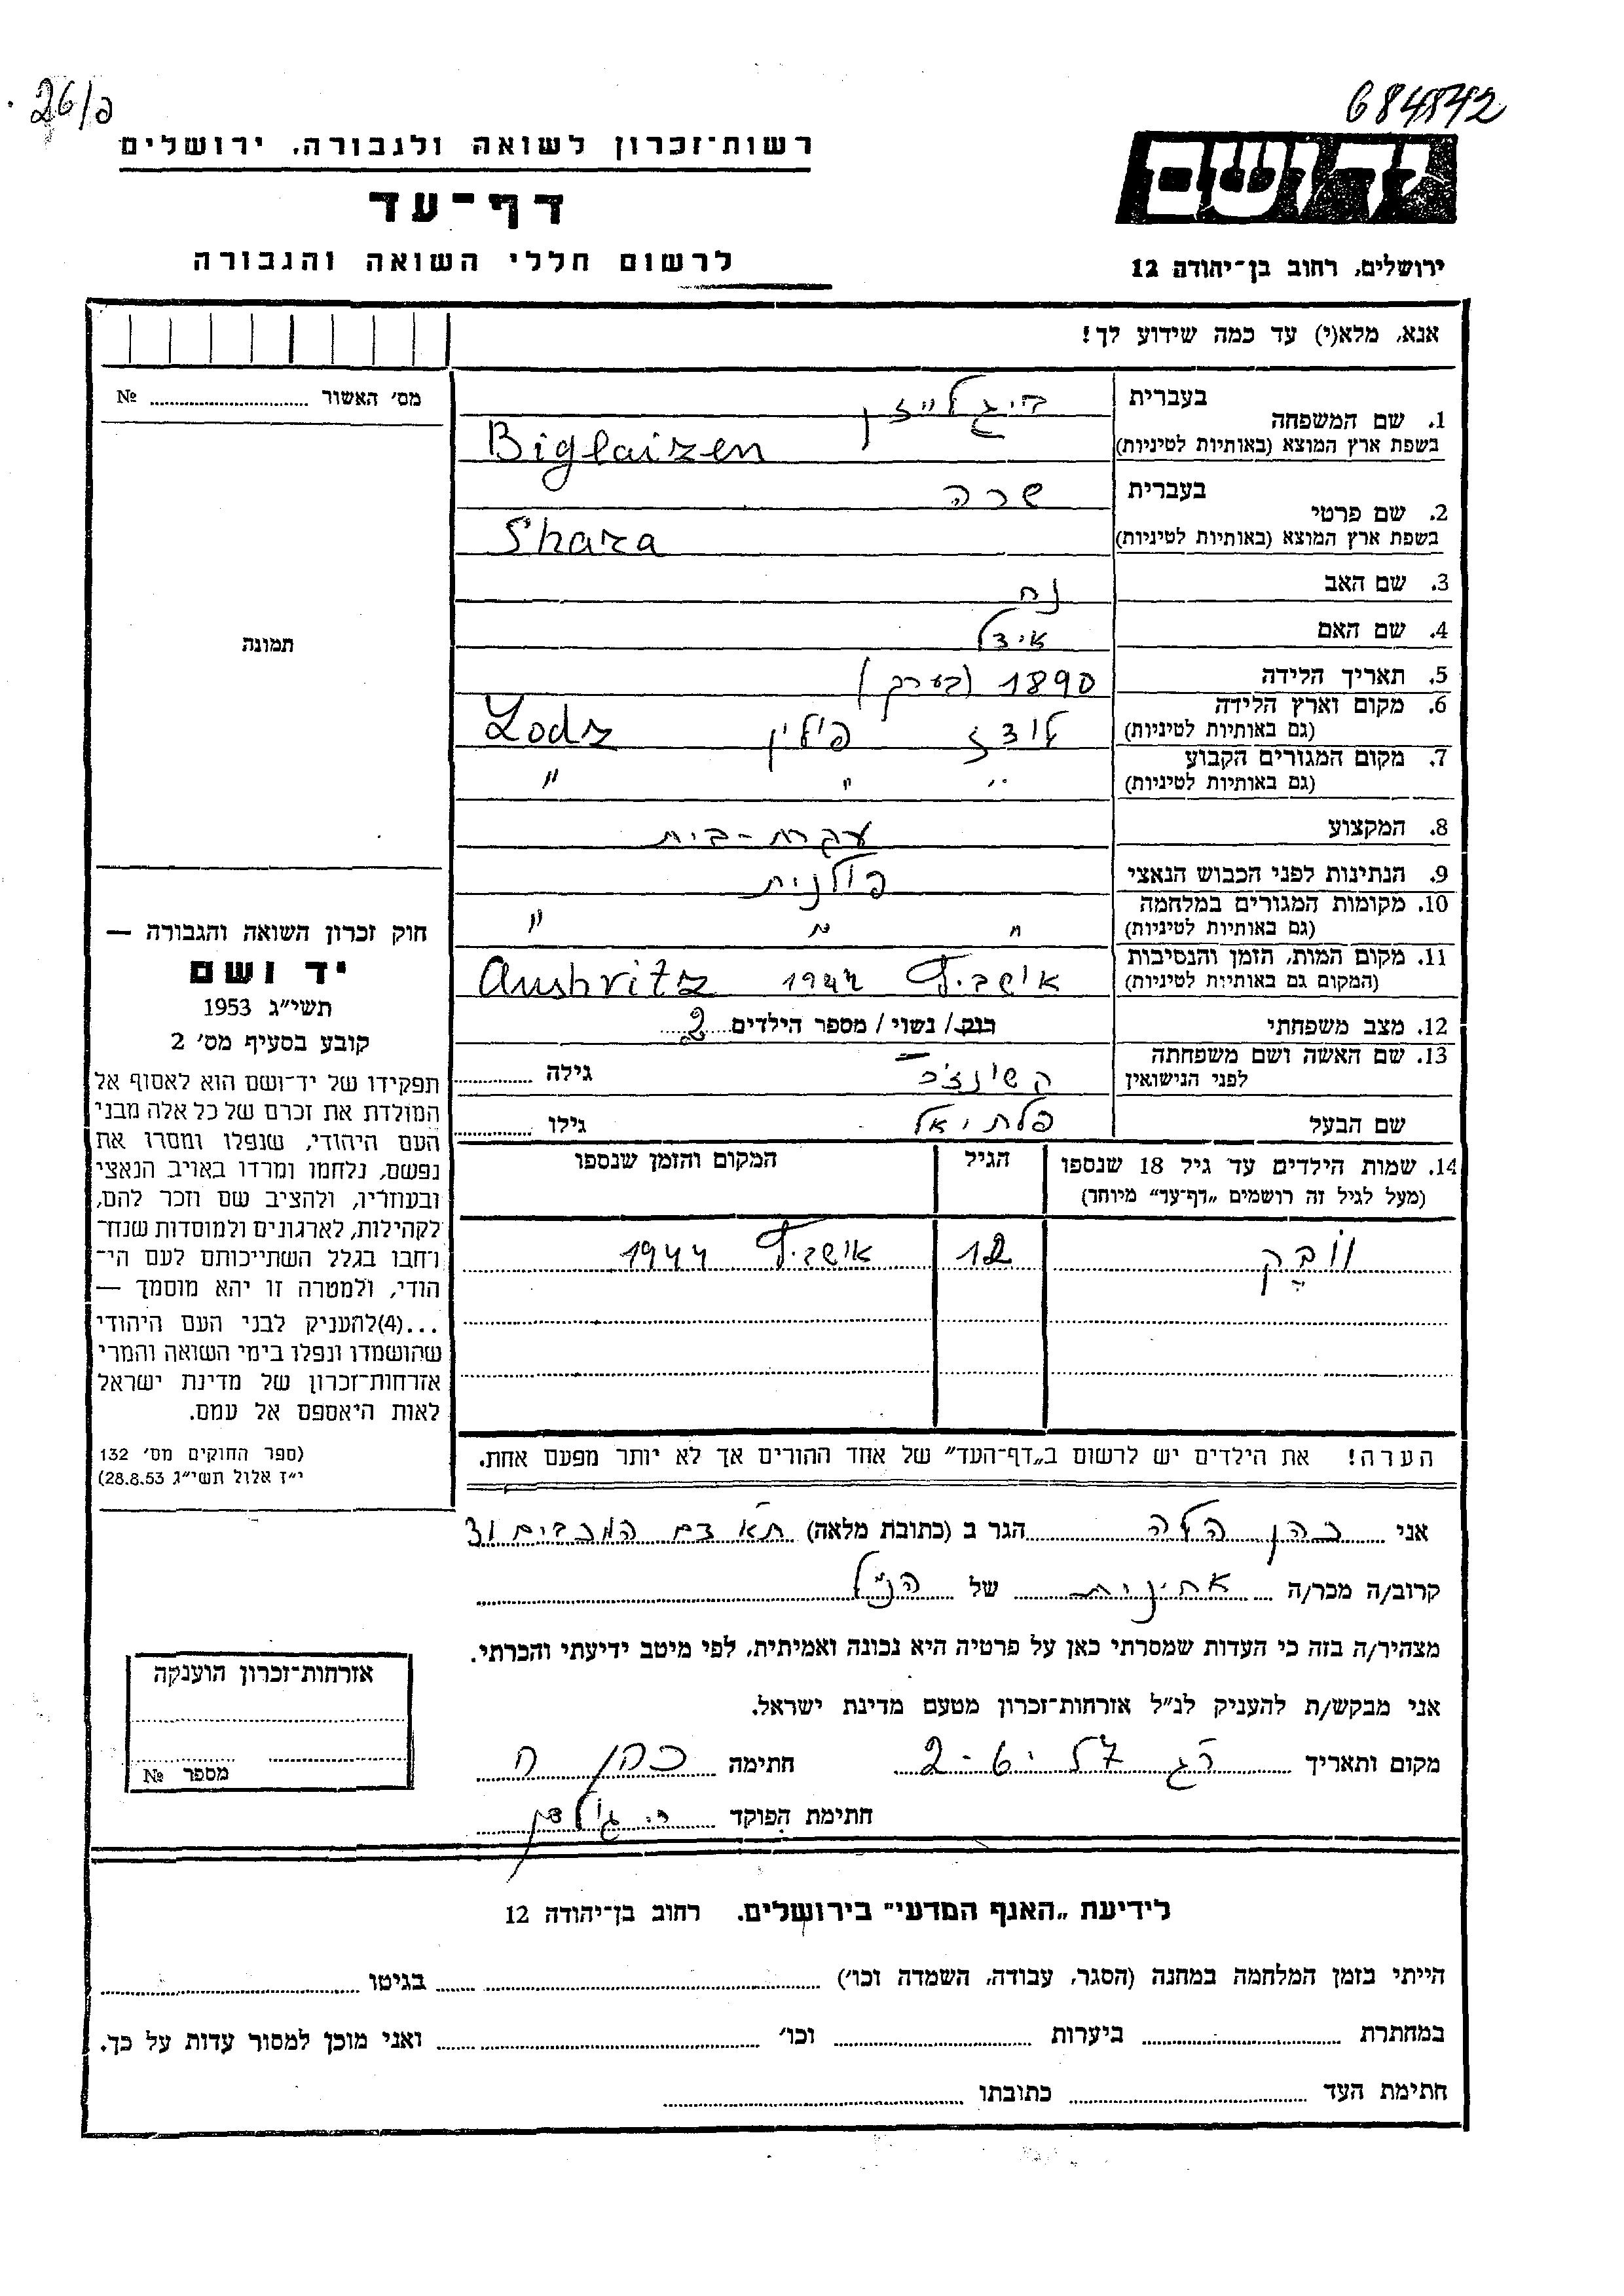 26/פ
684842
רשות־זכרון לשואה ולגבורה. ירושלים
דף־עד
לרשום חללי השואה והגבורה
יד ושם
ירושלים, רחוב בן־יהודה 12
אנא, מלא(י) עד כמה שידוע לך!
מס׳ האשור № 
תמונה
1. שם המשפחה
בעברית ביגלייזן
בשפת ארץ המוצא (באותיות לטיניות) Biglaizen
2. שם פרטי
בעברית שרה
בשפת ארץ המוצא (באותיות לטיניות) Shara
3. שם האב נח
4. שם האם אידל
5. תאריך הלידה 1890 (בערך)
6. מקום וארץ הלידה לודז פולין Lodz
(גם באותיות לטיניות)
7. מקום המגורים הקבוע " " "
(גם באותיות לטיניות)
8. המקצוע עקרת-בית
9. הנתינות לפני הכבוש הנאצי פולנית
10. מקומות המגורים במלחמה " " "
(גם באותיות לטיניות)
11. מקום המות, הזמן והנסיבות אושביץ 1944 Aushvitz
(המקום גם באותיות לטיניות)
12. מצב משפחתי רווק / נשוי / מספר הילדים 2
13. שם האשה ושם משפחתה גילה
לפני הנישואין
שם הבעל פלתיאל גילו
14. שמות הילדים עד גיל 18 שנספו הגיל המקום והזמן שנספו
(מעל לגיל זה רושמים „דף־עד״ מיוחד)
וֹבֶק 12 אושביץ 1944
הערה! את הילדים יש לרשום ב„דף־העד״ של אחד ההורים אך לא יותר מפעם אחת.
חוק זכרון השואה והגבורה —
יד ושם
תשי״ג 1953
קובע בסעיף מס׳ 2
תפקידו של יד־ושם הוא לאסוף אל
המולדת את זכרם של כל אלה מבני
העם היהודי, שנפלו ומסרו את
נפשם, נלחמו ומרדו באויב הנאצי
ובעוזריו, ולהציב שם וזכר להם,
לקהילות, לארגונים ולמוסדות שנח־
רחבו בגלל השתייכותם לעם הי־
הודי, ולמטרה זו יהא מוסמך —
...(4)להעניק לבני העם היהודי
שהושמדו ונפלו בימי השואה והמרי
אזרחות־זכרון של מדינת ישראל
לאות היאספם אל עמם.
(ספר החוקים מס׳ 132
י״ז אלול תשי״ג 28.8.53)
אני כהן הלה הגר ב (כתובת מלאה) המכבים
קרוב/ה מכר/ה אחינית של הנ״ל
מצהיר/ה בזה כי העדות שמסרתי כאן על פרטיה היא נכונה ואמיתית, לפי מיטב ידיעתי והכרתי.
אני מבקש/ת להעניק לנ״ל אזרחות־זכרון מטעם מדינת ישראל.
מקום ותאריך רג 2-6-57 חתימה כהן ה
חתימת הפוקד
אזרחות־זכרון הוענקה
מספר №
לידיעת „האגף המדעי״ בירושלים. רחוב בן־יהודה 12
הייתי בזמן המלחמה במחנה (הסגר, עבודה, השמדה וכו׳) בגיטו
במחתרת ביערות וכו׳ ואני מוכן למסור עדות על כך.
חתימת העד כתובתו